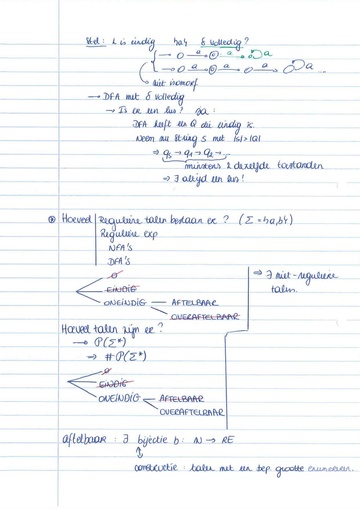 Stel : L is eindig       haξ   δ volledig?
→ O -a→ ◎ -a→ O a
→ O -a→ ◎ -a→ O -a→ O a
niet isomorf.
→ DFA met δ volledig
→ Is er een lus? Ja :
DFA heeft een Q die eindig is.
Neem nu string s met |s| > |Q|
⇒ q₀ → q₁ → q₂ → ...
minstens 2 dezelfde toestanden
⇒ ∃ altijd een lus!
⊛ Hoeveel | Reguliere talen bestaan er ? (Σ = {a,b})
Reguliere exp
NFA's
DFA's
∅
EINDIG
ONEINDIG — AFTELBAAR
OVERAFTELBAAR
⇒ ∃ niet-reguliere
talen.
Hoeveel talen zijn er ?
→ P(Σ*)
→ # P(Σ*)
∅
EINDIG
ONEINDIG — AFTELBAAR
OVERAFTELBAAR
aftelbaar : ∃ bijectie b : N → RE
constructie : talen met een bep grootte enumereren.